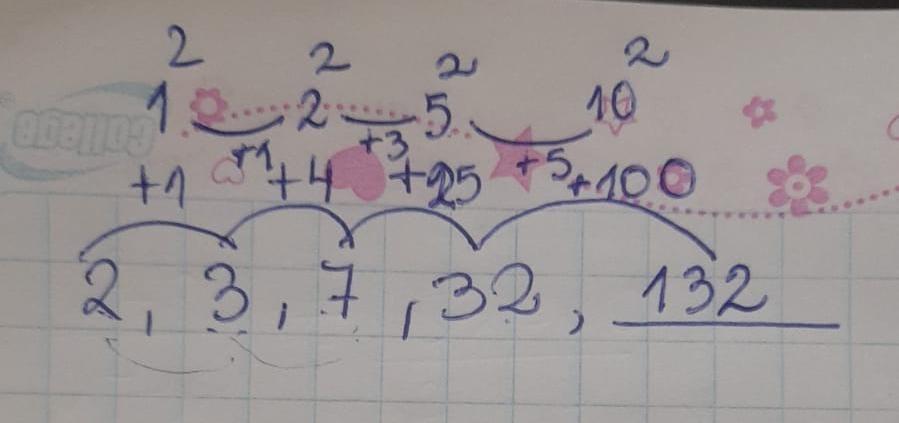 1² 2² 5² 10²
+1 +3 +5
+1 +4 +25 +100
2, 3, 7, 32, 132
College